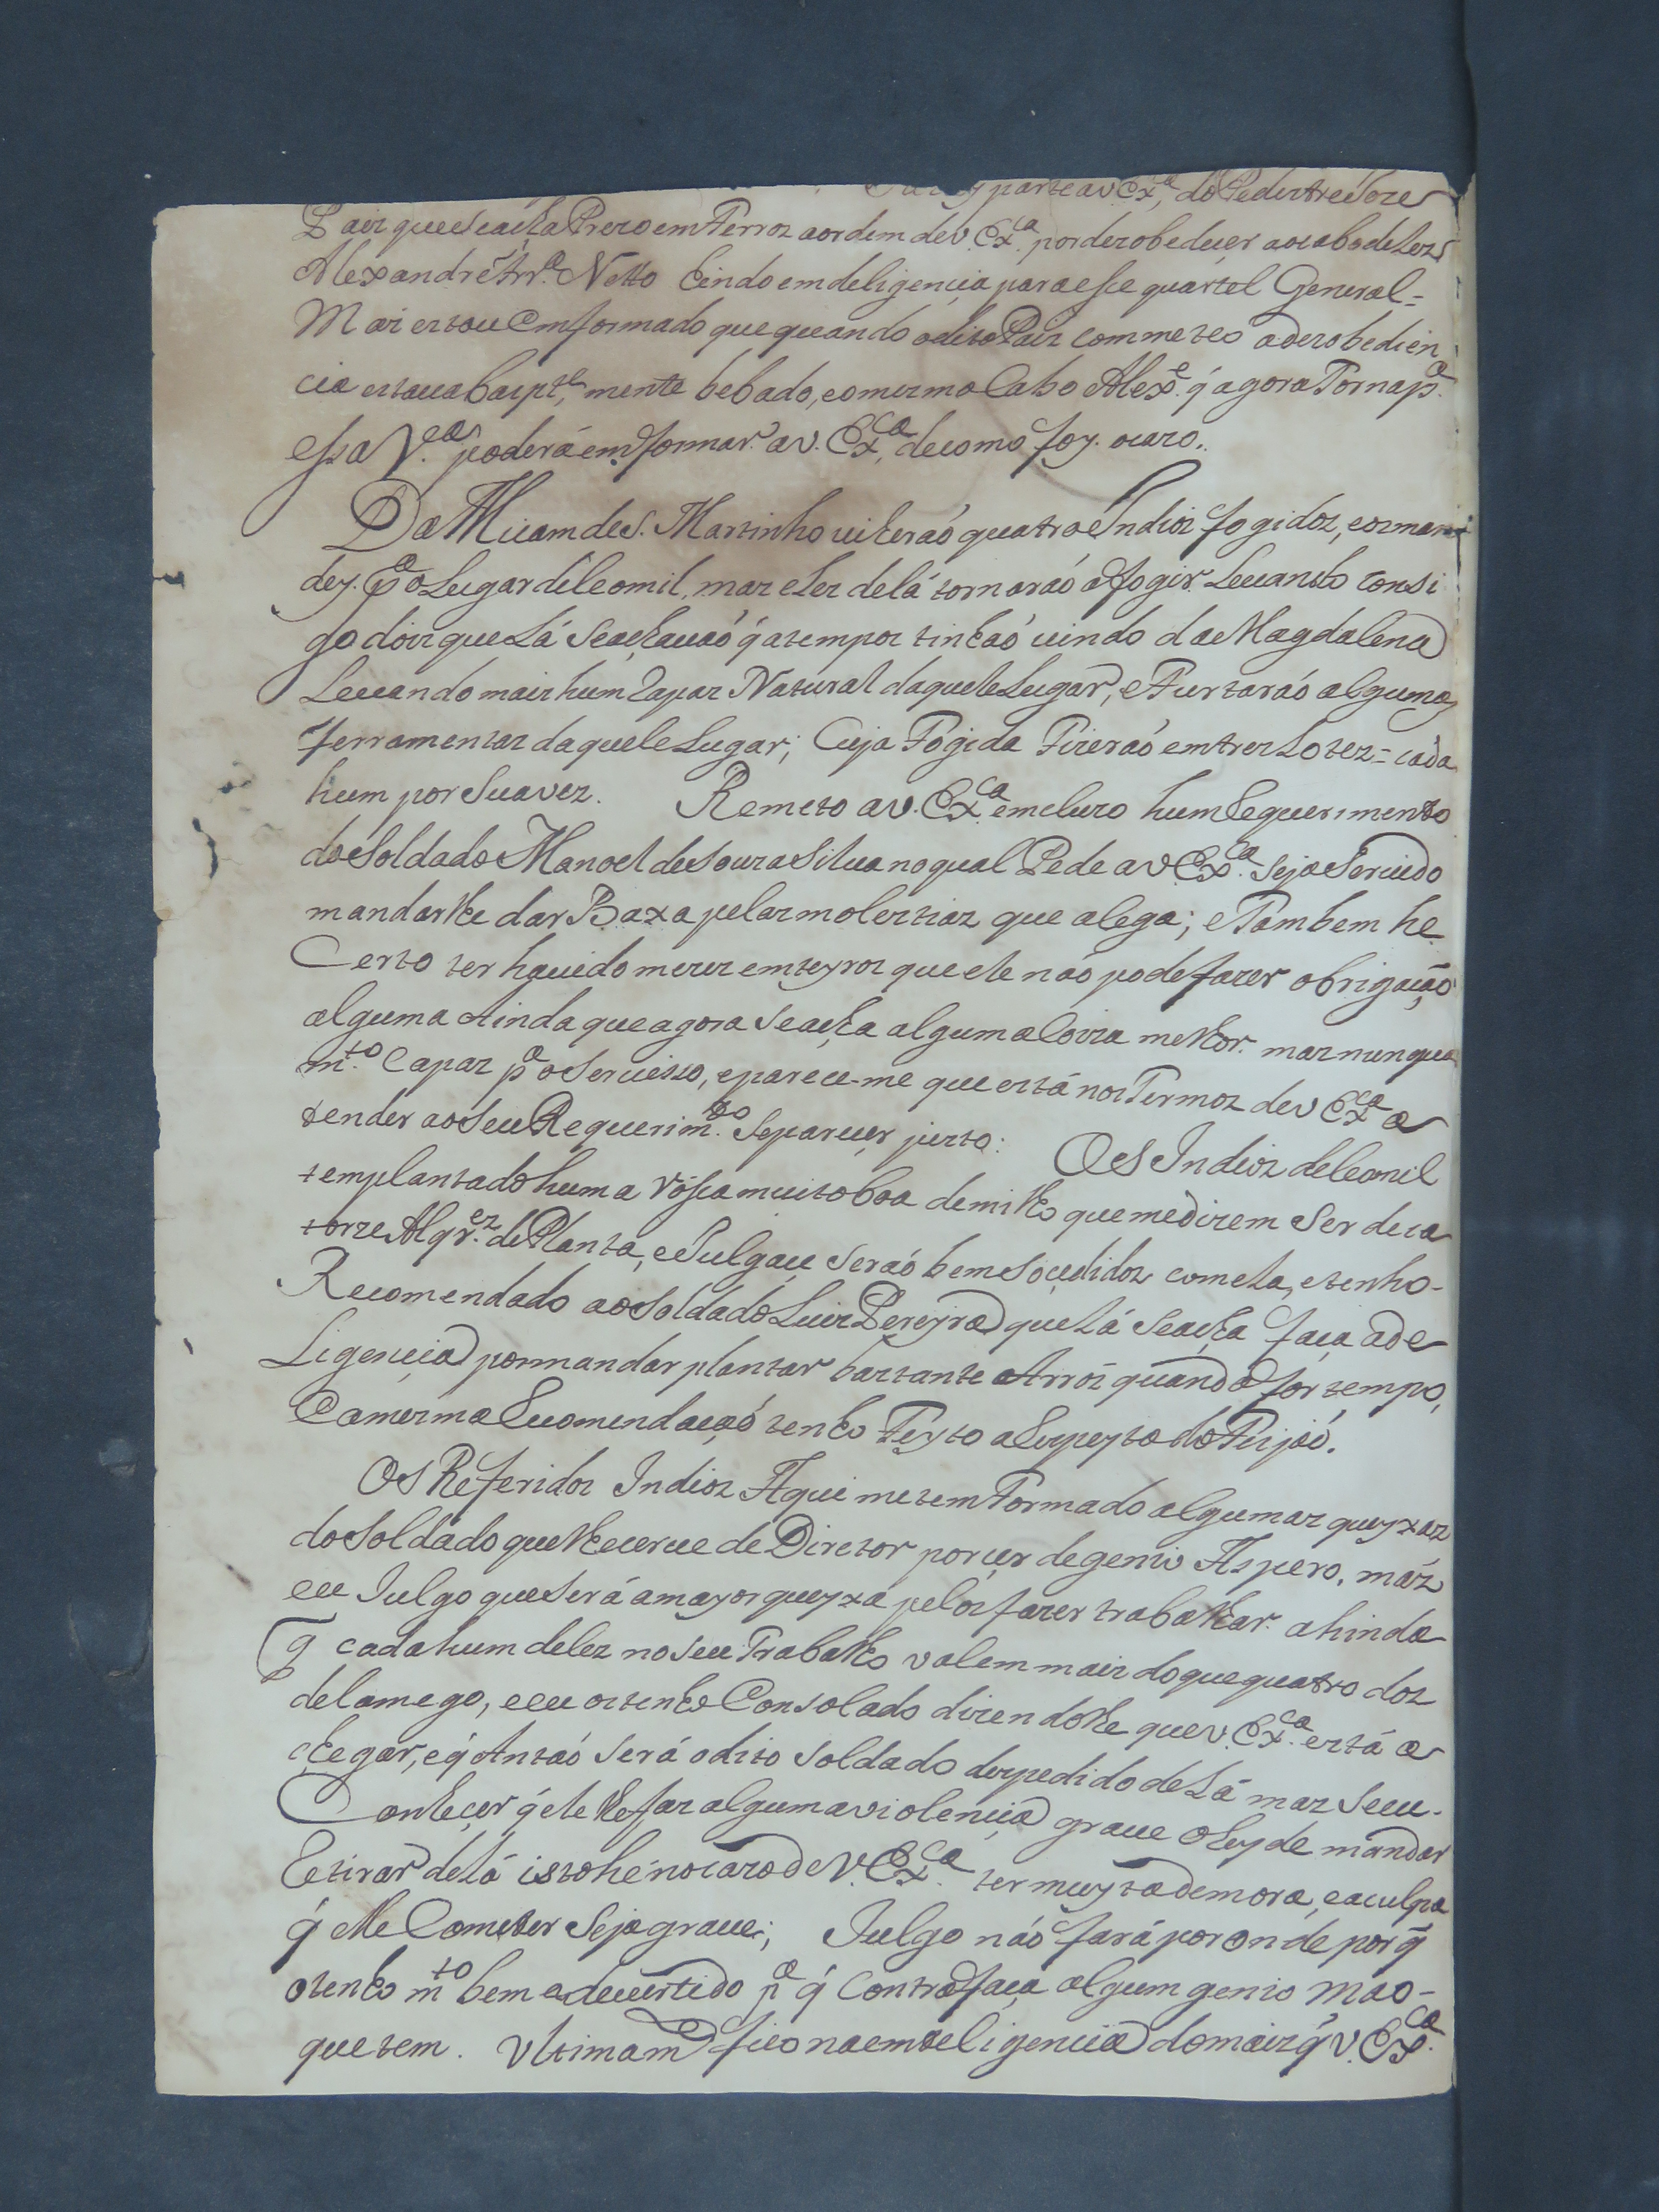 parte a v. Exª, do Pedestre Joze
Pais que se acha Prezo em Ferros a ordem de V. Exª. por dezobedecer ao cabo de Lezs
Alexandre Frrª. Netto hindo em deligencia para esse quartel General =
Mas estou emformado que quando o dito Pais commeteo a dezobedien
cia estava baspte,mente bebado, e o mesmo Cabo Alexe. q̃ agora Torna pª.
essa Vª. poderá emformar a V. Exca, de como foy. o cazo.
Da Micam de S. Martinho vieraó quatro Indios fogidos, e os man
dey. pª o Lugar de Leomil, mas eles de lá tornaraó a fogir Levando consi
go dois que Lá se achavaó q̃ a tempos tinhaó vindo da Magdalena
Levando mais hum Rapas Natural daquele Lugar, e Furtaraó algumas
ferramentas daquele Lugar; Cuja Fogida Fizeraó em tres Lotes = cada
hum por sua vez. Remeto a V. Exª emcluzo hum Requerimento
do Soldado Manoel de Souza Silva no qual Pede a V Exª. seja Servido
mandarlhe dar Baxa pelas molestias que alega; e Tambem he
Certo ter havido mezes emteyros que ele não pode fazer obrigação
alguma Ainda que agora se acha alguma Coiza melhor. mas nunqua
mto. Capas pª o Servisso, e parece-me que está nos Termos de V Exca a
tender ao seu Requerimto. Se parecer justo: OS Indios de Leomil
tem plantado huma rossa muito boa de milho que me dizem ser de ca
torze Alqres. de Planta, e Julgau seraó bem socedidos com ela, e tenho-
Recomendado ao Soldado Luis Pereyra que Lá se acha faça a de
Ligencia por mandar plantar bastante Arros quando for tempo,
e a mesma Recomendaçaó tenho Feyto a Respeyto do Fejaó.
OS Referidos Indios Aqui me tem Formado algumas queyxas
do Soldado que lhe serve de Diretor por ser de genio Aspero, más
eu Julgo que será a mayor queyxa pelos fazer trabalhar. ahinda
q̃ cada hum deles no seu Trabalho valem mais do que quatro dos
de Lamego, e eu os tenho Consolado dizendolhe que V. Exca. está a
chegar, e q̃ Antaó será o dito Soldado despedido de Lá mas se eu-
Conhecer q̃ ele lhe faz alguma violencia grave o hey de mandar
Retirar de Lá isto he no cazo de V. Exca. ter muyta demora, e a culpa
q̃ elle Cometer seja grave; Julgo náo fará por onde por q̃
o tenho mto bem adevertido pª q̃ Contrafaça algum genio mao-
que tem. Vltimamte fico na emteligencia do mais q̃ V. Exca.